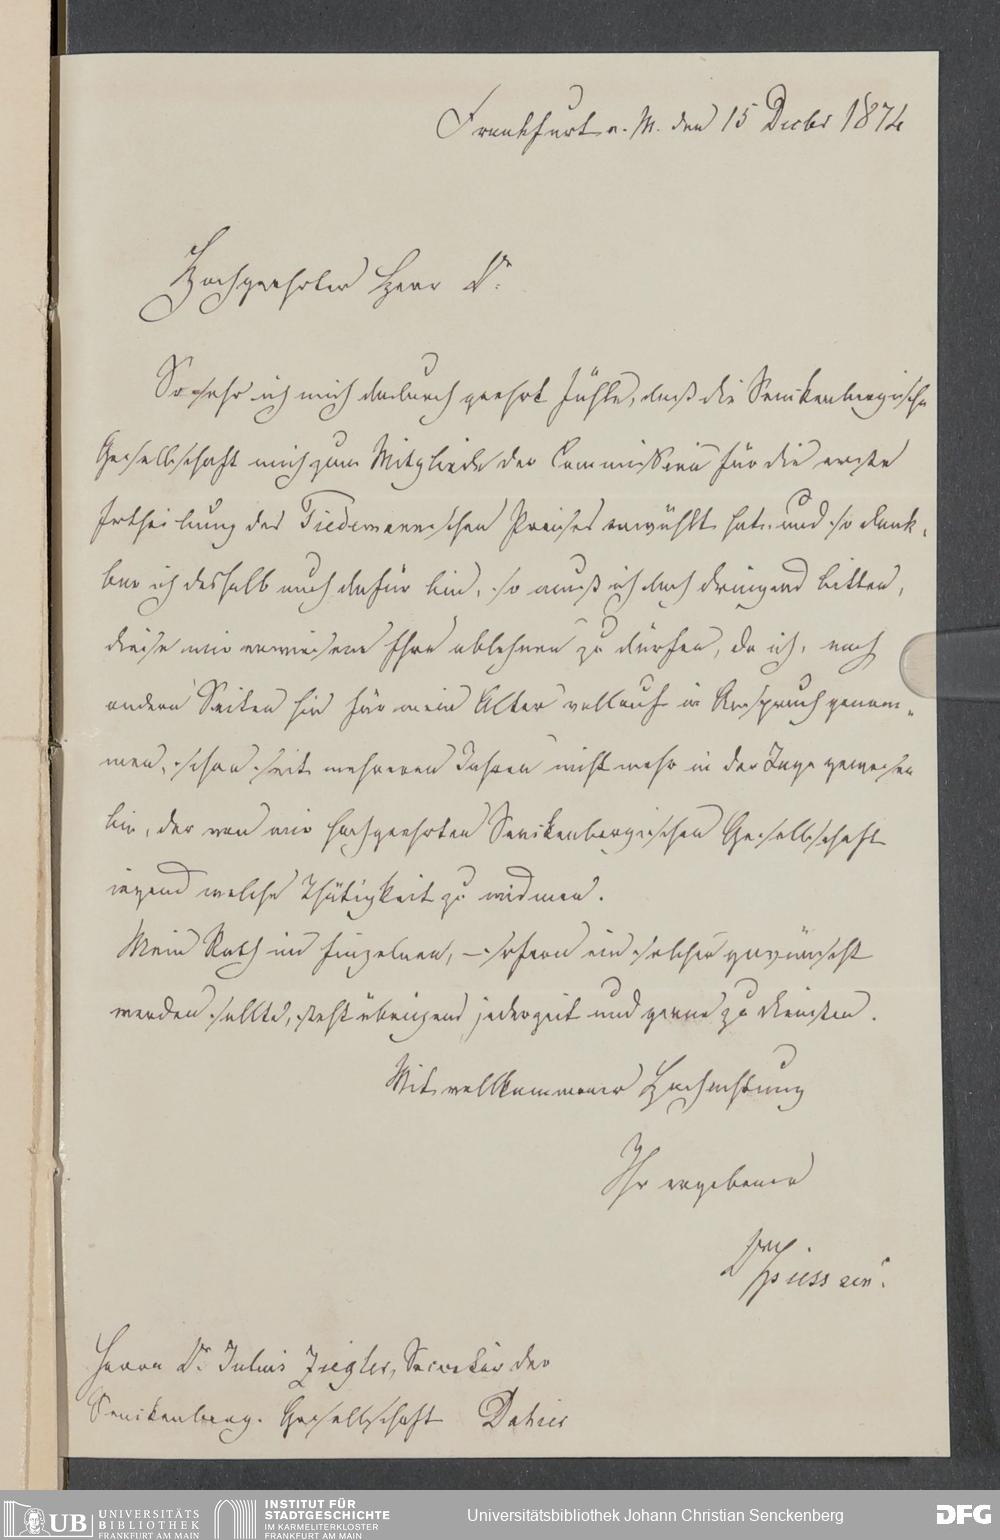 Frankfurt a. M. den 15 Decbr 1874
Hochgeehrter Herr Dr.
So sehr ich mich dadurch geehrt fühle, daß die Senckenbergische
Gesellschaft mich zum Mitgliede der Commission für die erste
Ertheilung des Tiedemannischen Preises erwählt hat, und so dank-
bar ich deshalb auch dafür bin, so muß ich doch dringend bitten,
diese mir erwiesene Ehre ablehnen zu dürfen, da ich, nach
andern Seiten hin für mein Alter vollauf in Anspruch genom-
men, schon seit mehreren Jahren nicht mehr in der Lage gewesen
bin, der von mir hochgeehrten Senckenbergischen Gesellschaft
irgend welche Thätigkeit zu widmen.
Mein Rath im Einzelnen, – sofern ein solcher gewünscht
werden sollte, steht übrigens jederzeit und gerne zu Diensten.
Mit vollkommener Hochachtung
Ihr ergebener
Spiess sen.
Herrn Dr. Julius Ziegler, Secretär der
Senckenberg. Gesellschaft Dahier
UB UNIVERSITÄTS
BIBLIOTHEK
FRANKFURT AM MAIN
INSTITUT FÜR
STADTGESCHICHTE
IM KARMELITERKLOSTER
FRANKFURT AM MAIN
Universitätsbibliothek Johann Christian Senckenberg
DFG